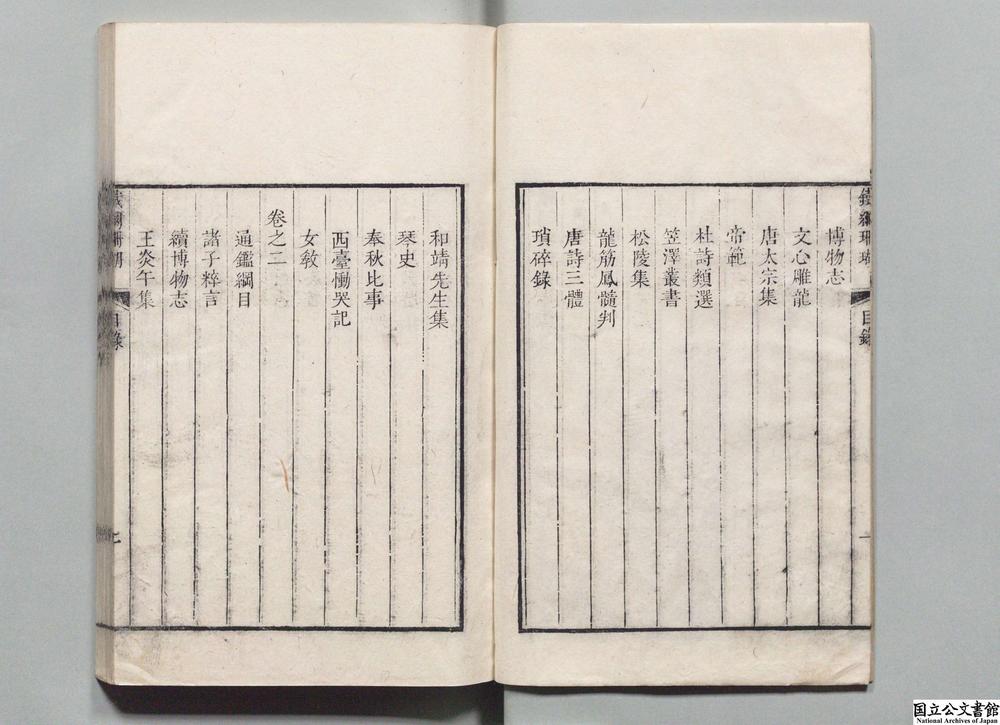 博物志
文心雕龍
唐太宗集
帝範
杜詩類選
笠澤叢書
松陵集
龍筋鳳髓判
唐詩三體
瑣碎錄
和靖先生集
琴史
奉秋比事
西臺慟哭記
女敎
卷之二
通鑑綱目
諸子粹言
續博物志
王炎午集
目錄
国立公文書館
National Archives of Japan